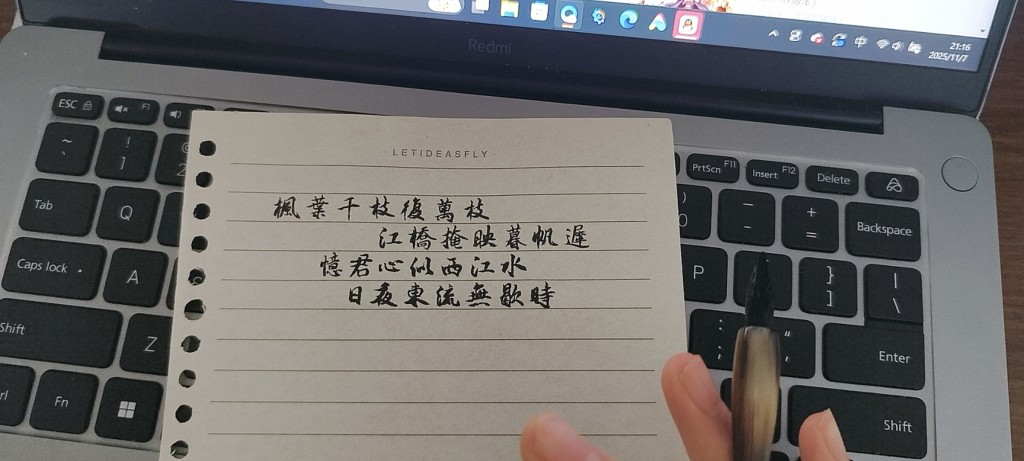 Redmi
21:16
2025/11/7
中
LETIDEASFLY
楓葉千枝復萬枝
江橋掩映暮帆遲
憶君心似西江水
日夜東流無歇時
ESC
F1
PrtScn F11
Insert F12
Delete
~
` ! 1
2
)
0
_
-
+
=
Backspace
Tab
Q
P
}
]
|
\
Caps lock
A
:
;
"
Enter
Shift
Z
Shift
Fn